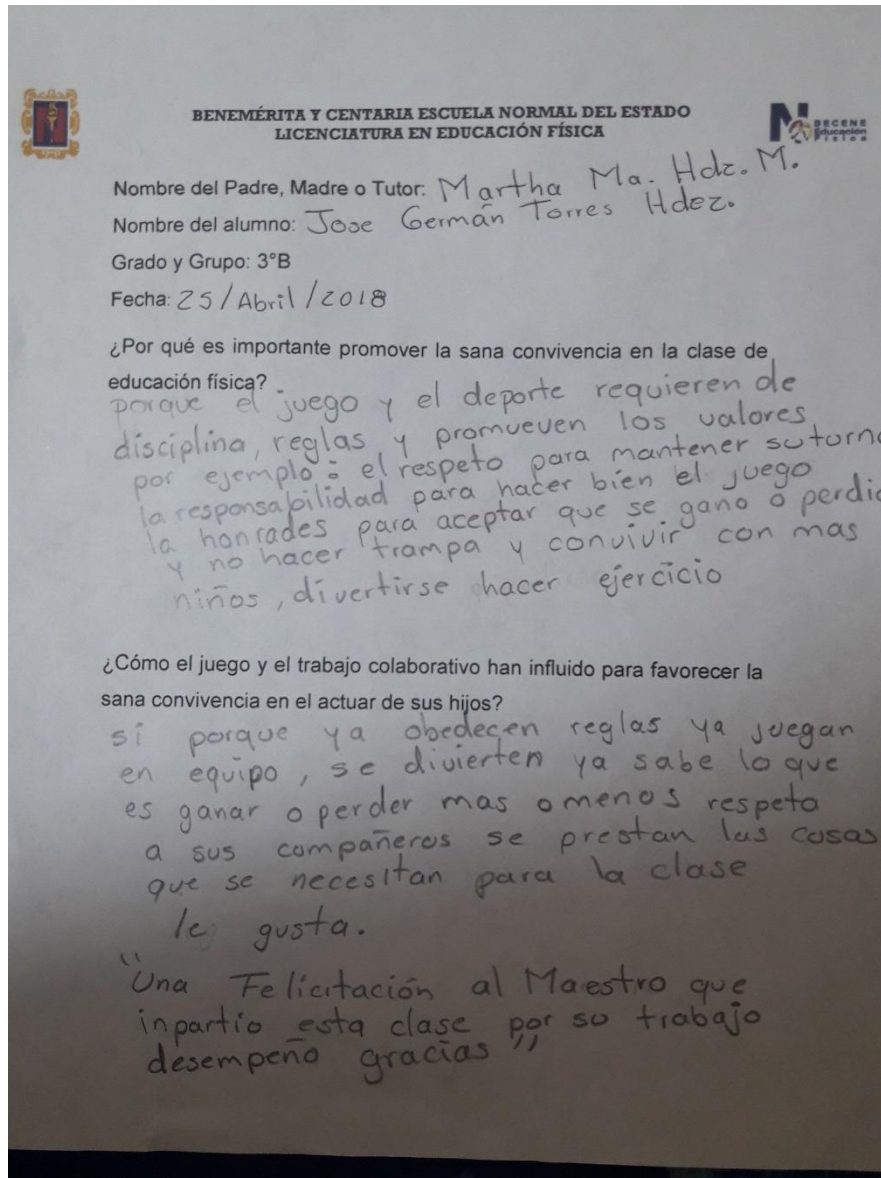 BENEMÉRITA Y CENTARIA ESCUELA NORMAL DEL ESTADO
LICENCIATURA EN EDUCACIÓN FÍSICA
BECENE
Educación
Física
Nombre del Padre, Madre o Tutor: Martha Ma. Hdz. M.
Nombre del alumno: Jose Germán Torres Hdez.
Grado y Grupo: 3°B
Fecha: 25/Abril/2018
¿Por qué es importante promover la sana convivencia en la clase de
educación física?
porque el juego y el deporte requieren de
disciplina, reglas y promueven los valores
por ejemplo: el respeto para mantener su turno
la responsabilidad para hacer bien el juego
la honrades para aceptar que se gano o perdio
y no hacer trampa y convivir con mas
niños, divertirse hacer ejercicio
¿Cómo el juego y el trabajo colaborativo han influido para favorecer la
sana convivencia en el actuar de sus hijos?
si porque ya obedecen reglas ya juegan
en equipo, se divierten ya sabe lo que
es ganar o perder mas o menos respeta
a sus compañeros se prestan las cosas
que se necesitan para la clase
le gusta.
"Una Felicitación al Maestro que
inpartio esta clase por su trabajo
desempeño gracias"